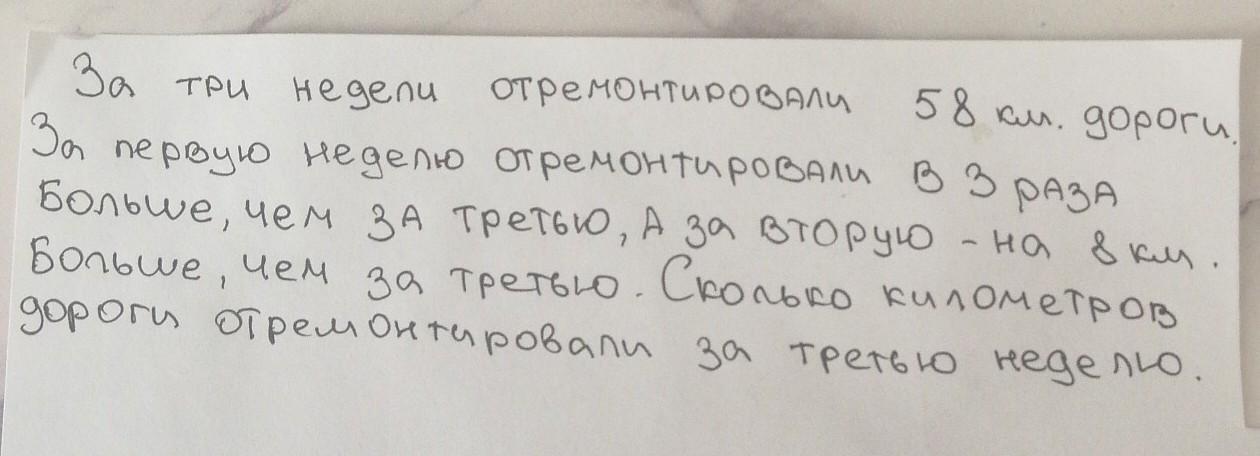 За три недели отремонтировали 58 км. дороги.
За первую неделю отремонтировали в 3 раза
больше, чем за третью, а за вторую - на 8 км.
больше, чем за третью. Сколько километров
дороги отремонтировали за третью неделю.